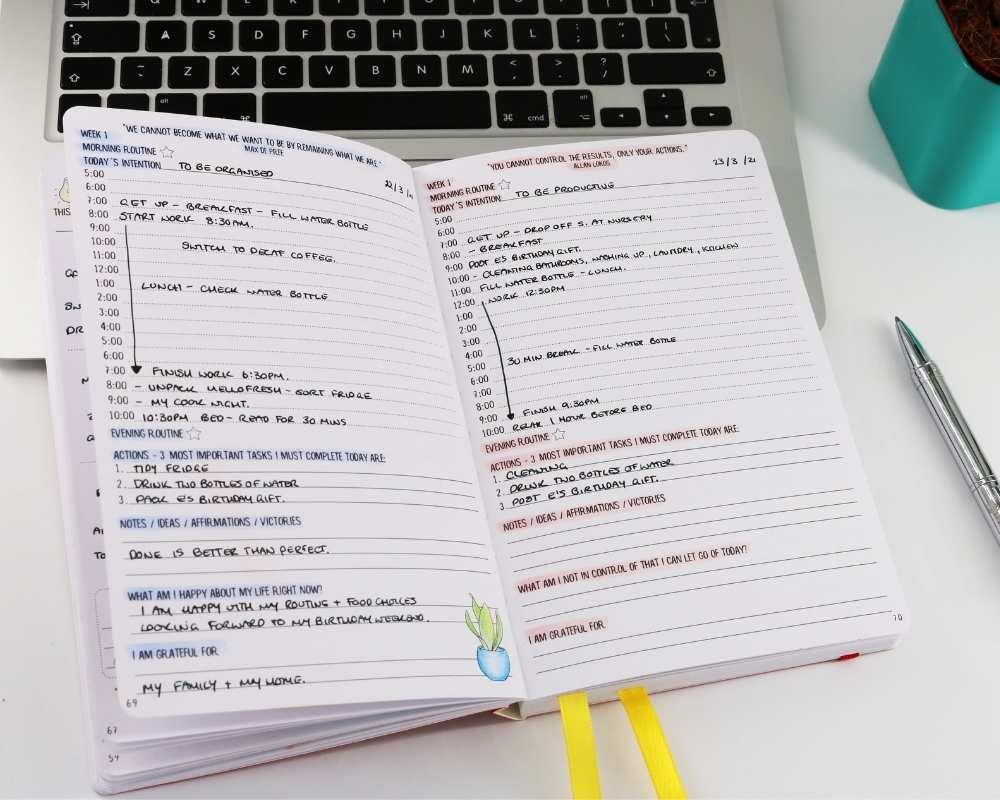 A S D F G H J K L : ; " '
Z X C V B N M < , > . ? /
alt
cmd
alt
THIS
WEEK 1 "WE CANNOT BECOME WHAT WE WANT TO BE BY REMAINING WHAT WE ARE."
MAX DE PREE
MORNING ROUTINE
TODAY'S INTENTION TO BE ORGANISED
22/3/
5:00
6:00
7:00 GET UP - BREAKFAST - FILL WATER BOTTLE
8:00 START WORK 8:30AM.
9:00
10:00 SWITCH TO DECAF COFFEE.
11:00
12:00
1:00 LUNCH - CHECK WATER BOTTLE
2:00
3:00
4:00
5:00
6:00
7:00 FINISH WORK 6:30PM.
8:00 - UNPACK HELLOFRESH - SORT FRIDGE
9:00 - MY COOK NIGHT.
10:00 10:30PM BED - READ FOR 30 MINS
EVENING ROUTINE
ACTIONS - 3 MOST IMPORTANT TASKS I MUST COMPLETE TODAY ARE:
1. TIDY FRIDGE
2. DRINK TWO BOTTLES OF WATER
3. PACK E'S BIRTHDAY GIFT.
NOTES / IDEAS / AFFIRMATIONS / VICTORIES
DONE IS BETTER THAN PERFECT.
WHAT AM I HAPPY ABOUT MY LIFE RIGHT NOW?
I AM HAPPY WITH MY ROUTINE + FOOD CHOICES
LOOKING FORWARD TO MY BIRTHDAY WEEKEND.
I AM GRATEFUL FOR
MY FAMILY + MY HOME.
69
67
"YOU CANNOT CONTROL THE RESULTS, ONLY YOUR ACTIONS."
ALLAN LOKOS
WEEK 1
23/3/21
MORNING ROUTINE
TODAY'S INTENTION TO BE PRODUCTIVE
5:00
6:00
7:00 GET UP - DROP OFF S. AT NURSERY
8:00 - BREAKFAST
9:00 POST E'S BIRTHDAY GIFT.
10:00 - CLEANING BATHROOMS, WASHING UP, LAUNDRY, KITCHEN
11:00 FILL WATER BOTTLE - LUNCH.
12:00 WORK 12:30PM
1:00
2:00
3:00
4:00 30 MIN BREAK - FILL WATER BOTTLE
5:00
6:00
7:00
8:00
9:00 FINISH 9:30PM
10:00 RELAX 1 HOUR BEFORE BED
EVENING ROUTINE
ACTIONS - 3 MOST IMPORTANT TASKS I MUST COMPLETE TODAY ARE:
1. CLEANING
2. DRINK TWO BOTTLES OF WATER
3 POST E'S BIRTHDAY GIFT.
NOTES / IDEAS / AFFIRMATIONS / VICTORIES
WHAT AM I NOT IN CONTROL OF THAT I CAN LET GO OF TODAY?
I AM GRATEFUL FOR
70